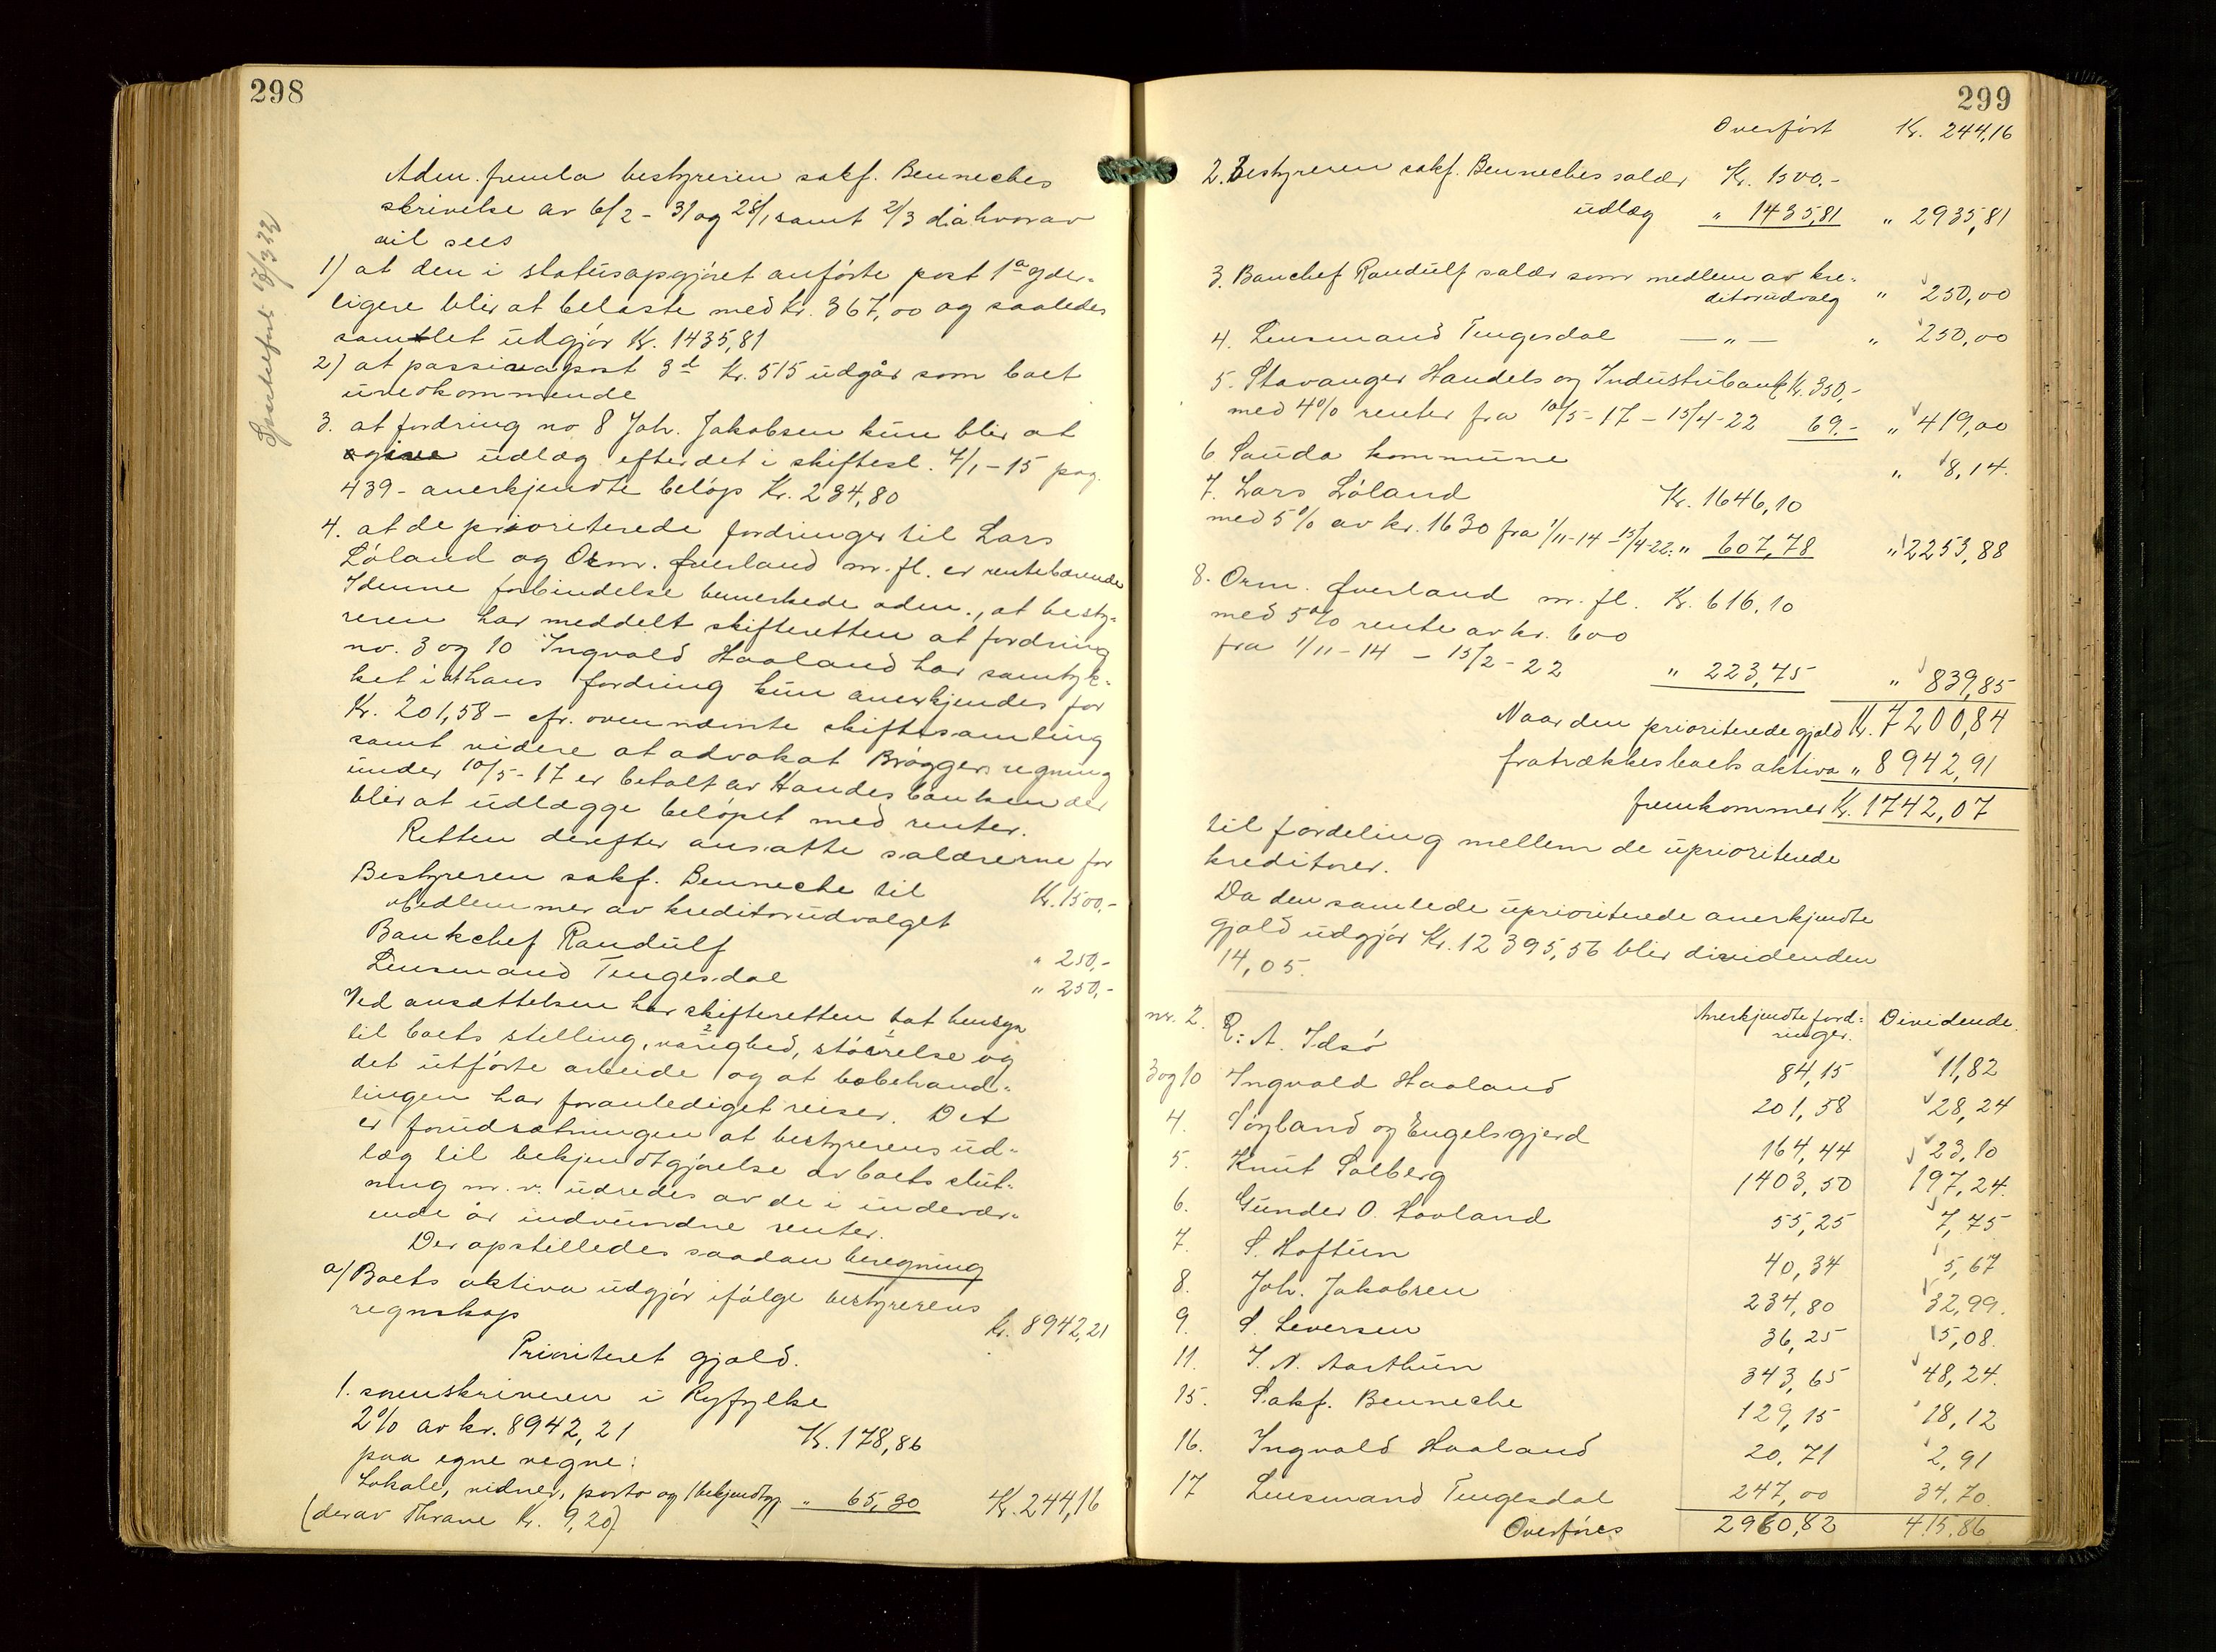 298
Adm. fremla bestyreren sakf. Benneches
skrivelse av 6/2 - 31 og 28/1 samt 2/3 d.a hvorav
vil sees
1) at den i statusopgjöret anförte post 1a yder-
ligere blir at belaste med kr. 367,00 og saaledes
samlet utgjör Kr. 1435,81
2) at passiva post 3d Kr. 515 udgår som boet
uvedkommende
3. at fordring no 8 Joh. Jakobsen kun blir at
give udlæg efter det i skiftesl. 7/1-15 pag.
439 - anerkjendte belöp Kr. 234,80
4. at de prioriterede fordringer til Lars
Löland og Orm. Øverland m.fl. er rentebærende
I denne forbindelse bemerkede adm., at besty-
reren har meddelt skifteretten at fordring
no. 3 og 10 Ingvald Haaland har samtyk-
ket i at hans fordring kun anerkjendes for
Kr. 201,58 - cfr. ovennævnte skiftesamling
samt videre at advokat Bröggers regning
under 10/5-17 er betalt av Handesbanken der
blir at udlægge belöpet med renter.
Retten derefter ansatte salærerne for
Bestyreren sakf. Benneche til Kr. 1500,-
Medlemmer av kreditorudvalget
Bankchef Randulf " 250,-
Lensmand Tengesdal " 250,-
Ved ansættelsen har skifteretten tat hensyn
til boets stilling, varighed, störrelse og
det utförte arbeide og at bobehand-
lingen har foranlediget reiser. Det
er forudsætningen at bestyrerens ud-
læg til bekjendtgjörelse av boets slut-
ning m.v. udredes av de i indevær-
ende år indvundne renter.
Der opstilledes saadan beregning
a) Boets aktiva udgjör ifölge bestyrerens
regnskap kr. 8942,21
Prioritert gjæld.
1. sorenskriveren i Ryfylke
2% av kr. 8942,21 Kr. 178,86
paa egne vegne:
Lokale, vidner, porto og bekjendtg. " 65,30 Kr. 244,16
(derav Thrane kr. 9,20)
299
Overfört Kr. 244,16
2. Bestyreren sakf. Benneches salær Kr. 1500.-
udlæg " 1435,81 " 2935,81
3. Banchef Randulf salær som medlem av kre-
ditorudvalg " 250,00
4. Lensmand Tengesdal — " — " 250,00
5. Stavanger Handels og Industribank Kr. 350,-
med 4% renter fra 10/5-17 - 15/4-22 69.- " 419,00
6 Sauda kommune " 8,14.
7. Lars Löland Kr. 1646,10
med 5% av kr. 1630 fra 1/11-14 - 15/4-22. " 607,78 " 2253,88
8. Orm. Øverland m.fl. Kr. 616,10
med 5% rente av kr. 600
fra 1/11-14 - 15/2-22 " 223,45 " 839,85
Naar den prioriterede gjæld Kr. 7200,84
fratrækkes boets aktiva " 8942,91
fremkommer Kr. 1742,07
til fordeling mellem de uprioriterede
kreditorer.
Da den samlede uprioriterede anerkjendte
gjæld udgjör Kr. 12395,56 blir dividenden
14,05.
Anerkjendte ford- Dividende.
ringer.
nr. 2. R. A. Idsö 84,15 11,82
3 og 10 Ingvald Haaland 201,58 28,24
4. Söyland og Engelsgjerd 164,44 23,10
5. Knut Solberg 1403,50 197,24.
6. Gunder O. Hovland 55,25 7,75
7. S. Hoftun 40,34 5,67
8. Joh. Jakobsen 234,80 32,99.
9. S. Seversen 36,25 5,08.
11. I. N. Aarthun 343,65 48,24.
15. Sakf. Benneche 129,15 18,12
16. Ingvald Haaland 20,71 2,91
17 Lensmand Tengesdal 247,00 34,70.
Overföres 2960,82 415,86